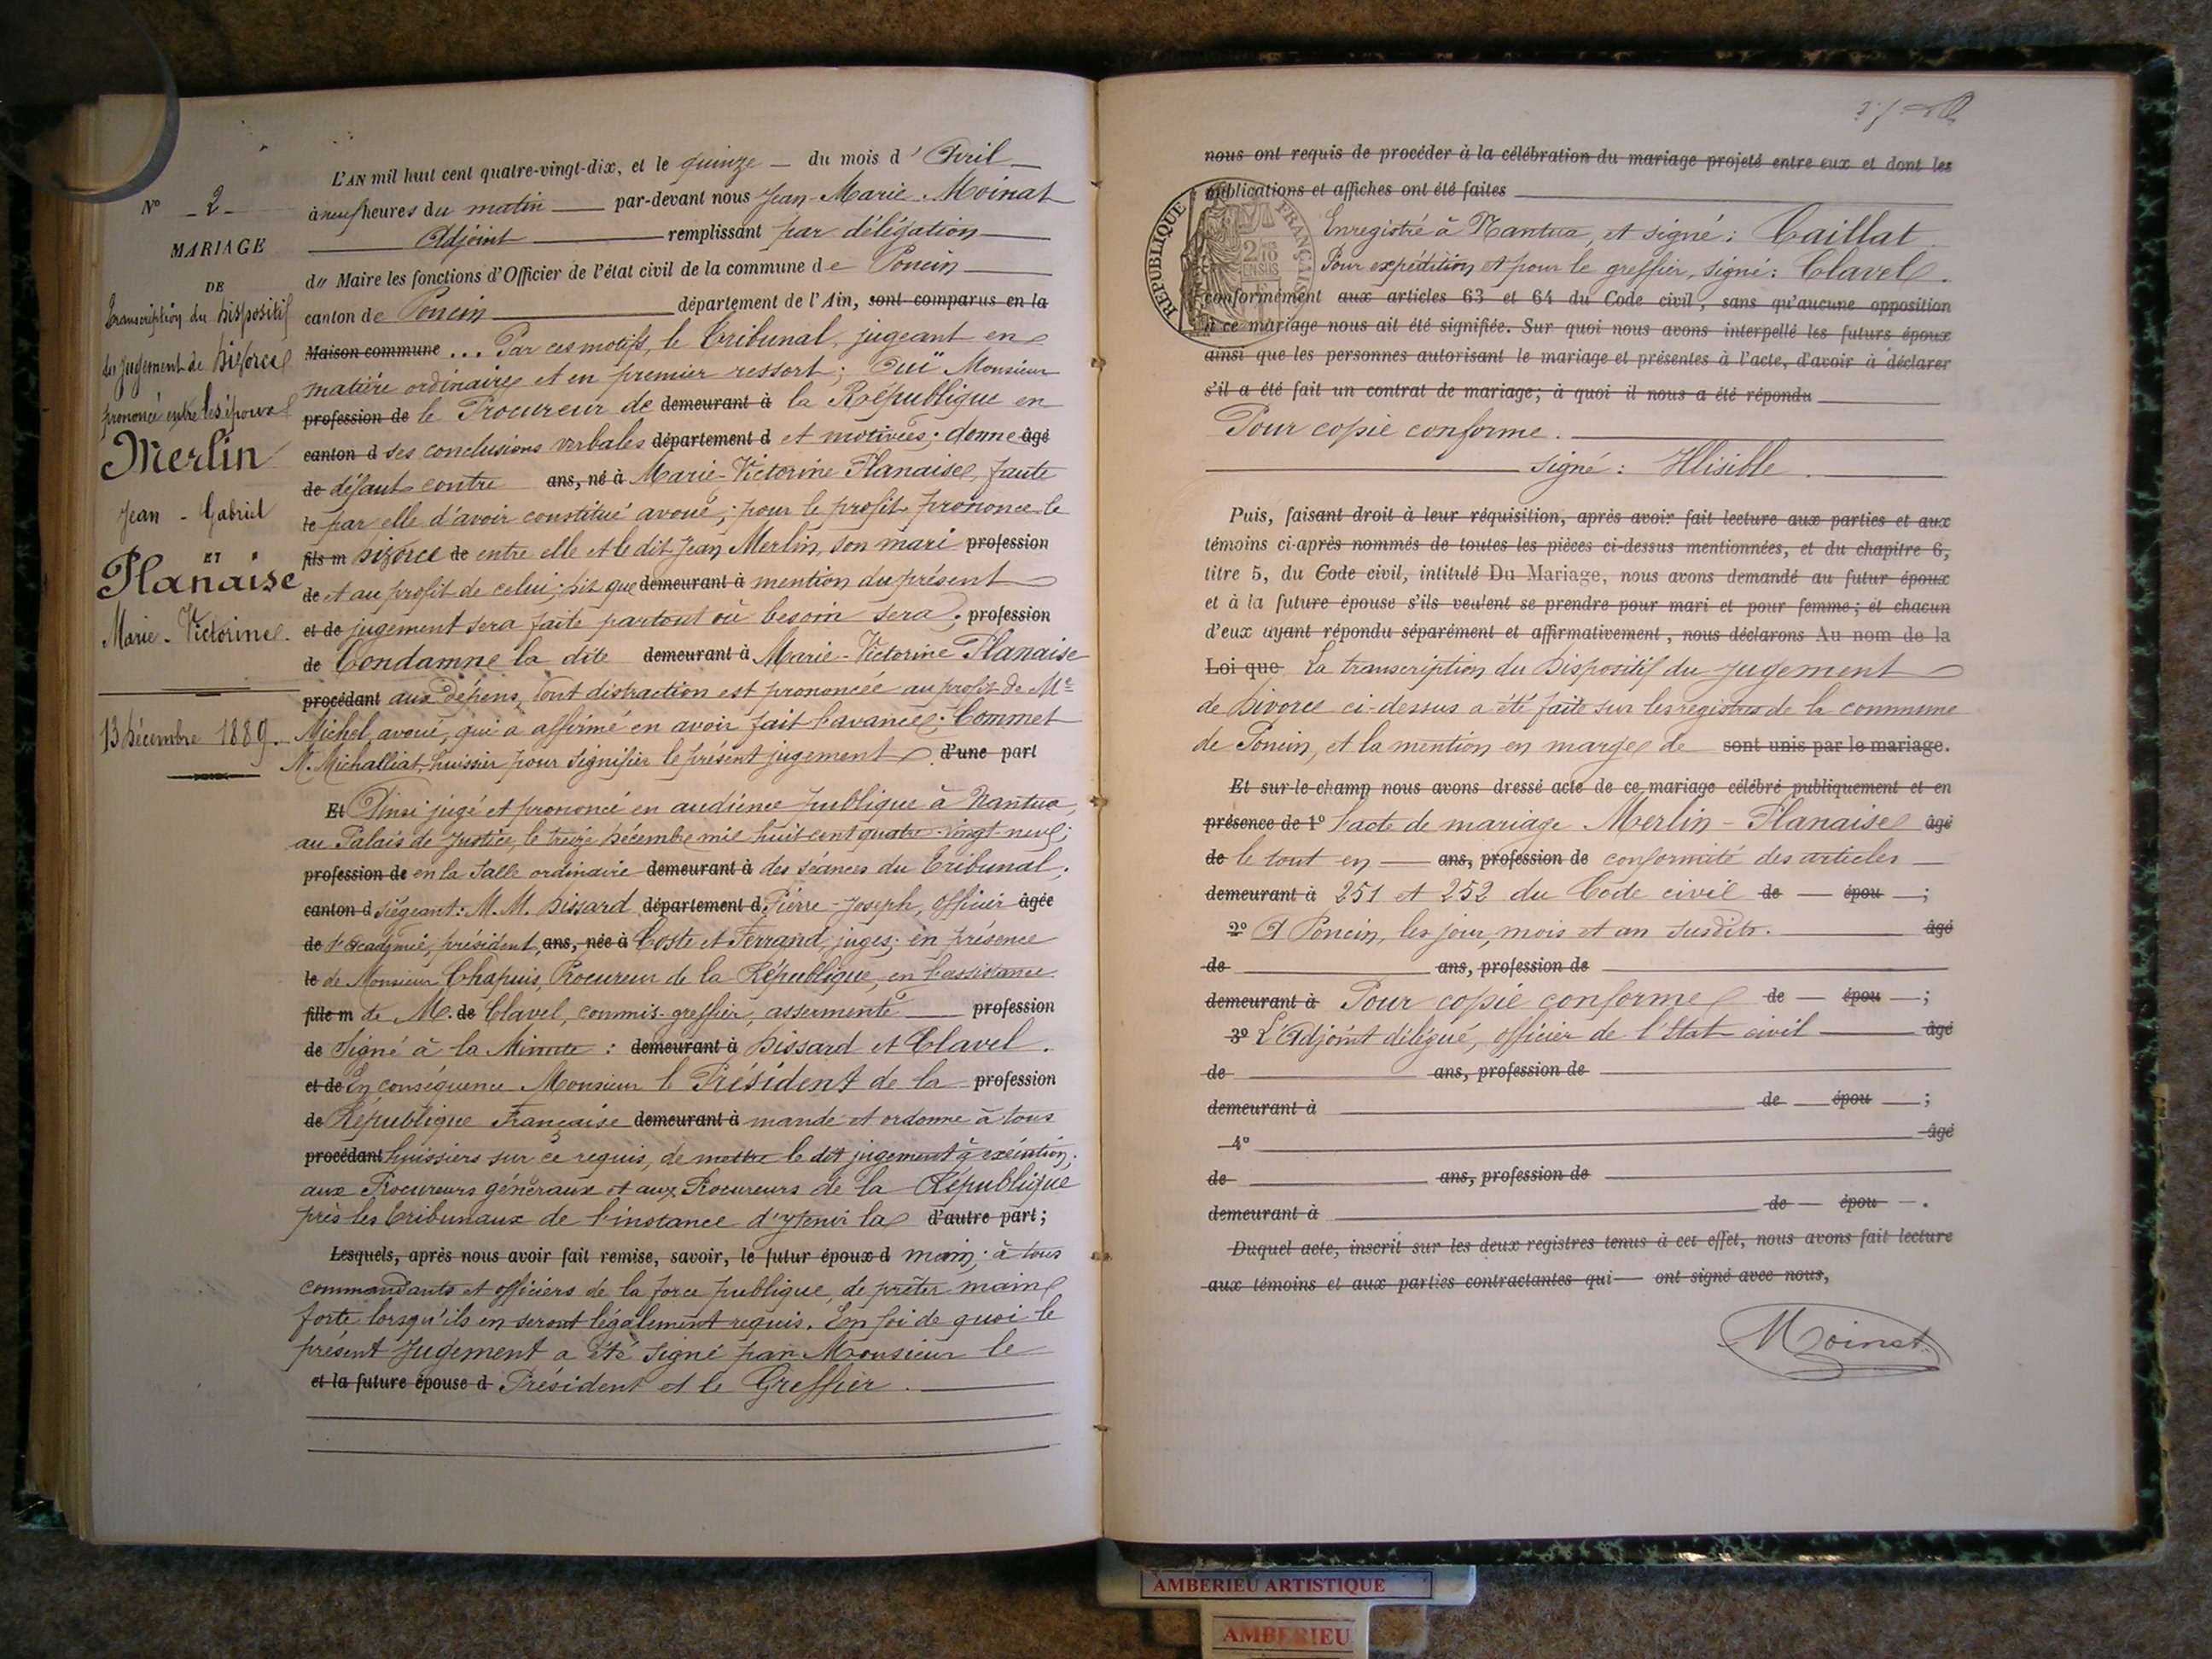 N° - 2 -
MARIAGE
DE
Transcription du Dispositif
du jugement de Divorce
prononcé entre les époux
Merlin
Jean - Gabriel
ET
Planaise
Marie - Victorine.
13 Décembre 1889.
L'AN mil huit cent quatre-vingt-dix, et le quinze — du mois d'Avril
à neuf heures du matin — par-devant nous Jean-Marie Moinat
Adjoint — remplissant par délégation
du Maire les fonctions d'Officier de l'état civil de la commune de Poncin
canton de Poncin — département de l'Ain, sont comparus en la
Maison commune ... Par ces motifs, le Tribunal, jugeant en
matière ordinaire et en premier ressort; Ouï Monsieur
profession de le Procureur de demeurant à la République en
canton d ses conclusions verbales département d et motivées; donne âgé
de défaut contre ans, né à Marie-Victorine Planaise, faute
le par elle d'avoir constitué avoué; pour le profit prononce le
fils m Divorce de entre elle et le dit Jean Merlin, son mari profession
de et au profit de celui; dit que demeurant à mention du présent
et de jugement sera faite partout où besoin sera; profession
de Condamne la dite demeurant à Marie-Victorine Planaise
procédant aux dépens, dont distraction est prononcée au profit de Me
Michel, avoué, qui a affirmé en avoir fait l'avance. Commet
M. Michalliat, huissier pour signifier le présent jugement d'une part
Et Ainsi jugé et prononcé en audience publique à Nantua,
au Palais de Justice, le treize Décembre mil huit cent quatre-vingt-neuf;
profession de en la Salle ordinaire demeurant à des séances du Tribunal;
canton d siégeant: M.M. Dissard département d Pierre-Joseph, officier âgée
de d'Académie, président, ans, née à Coste et Ferrand, juges; en présence
le de Monsieur Chapuis, Procureur de la République, en l'assistance
fille m de M. de Clavel, commis-greffier, assermenté — profession
de Signé à la Minute: demeurant à Dissard et Clavel.
et de En conséquence Monsieur le Président de la profession
de République Française demeurant à mande et ordonne à tous
procédant huissiers sur ce requis, de mettre le dit jugement à exécution;
aux Procureurs généraux et aux Procureurs de la République
près les tribunaux de 1re instance d'y tenir la d'autre part;
Lesquels, après nous avoir fait remise, savoir, le futur époux d main; à tous
commandants et officiers de la force publique, de prêter main
forte lorsqu'ils en seront légalement requis. En foi de quoi le
présent Jugement a été signé par Monsieur le
et la future épouse d Président et le Greffier.
nous ont requis de procéder à la célébration du mariage projeté entre eux et dont les
publications et affiches ont été faites
RÉPUBLIQUE FRANÇAISE
Enregistré à Nantua, et signé: Caillat
Pour expédition et pour le greffier, signé: Clavel.
conformément aux articles 63 et 64 du Code civil, sans qu'aucune opposition
à ce mariage nous ait été signifiée. Sur quoi nous avons interpellé les futurs époux
ainsi que les personnes autorisant le mariage et présentes à l'acte, d'avoir à déclarer
s'il a été fait un contrat de mariage; à quoi il nous a été répondu
Pour copie conforme.
signé: Illisible.
Puis, faisant droit à leur réquisition, après avoir fait lecture aux parties et aux
témoins ci-après nommés de toutes les pièces ci-dessus mentionnées, et du chapitre 6,
titre 5, du Code civil, intitulé Du Mariage, nous avons demandé au futur époux
et à la future épouse s'ils veulent se prendre pour mari et pour femme; et chacun
d'eux ayant répondu séparément et affirmativement, nous déclarons Au nom de la
Loi que La transcription du Dispositif du Jugement
de Divorce ci-dessus a été faite sur les registres de la commune
de Poncin, et la mention en marge de sont unis par le mariage.
Et sur-le-champ nous avons dressé acte de ce mariage célébré publiquement et en
présence de 1° l'acte de mariage Merlin-Planaise âgé
de le tout en — ans, profession de conformité des articles
demeurant à 251 et 252 du Code civil de — épou —;
2° A Poncin, les jour, mois et an susdits. âgé
de — ans, profession de
demeurant à Pour copie conforme de — épou —;
3° L'Adjoint délégué, officier de l'Etat civil — âgé
de — ans, profession de
demeurant à — de — épou —;
4° — âgé
de — ans, profession de
demeurant à — de — épou —.
Duquel acte, inscrit sur les deux registres tenus à cet effet, nous avons fait lecture
aux témoins et aux parties contractantes qui — ont signé avec nous,
Moinat
AMBERIEU ARTISTIQUE
AMBERIEU